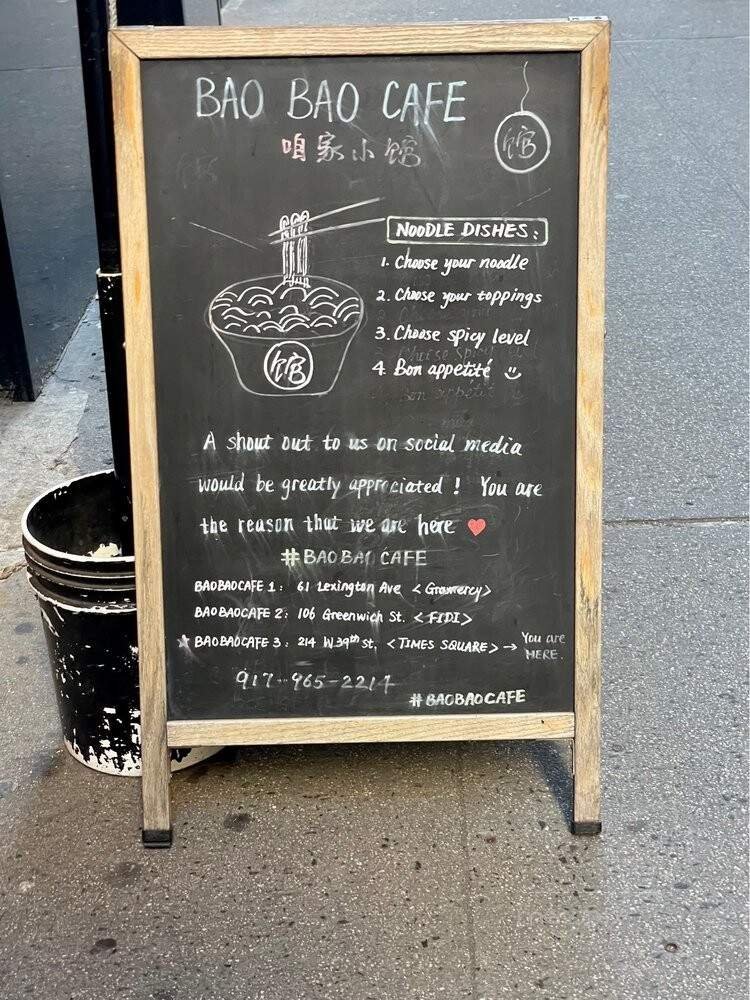 BAO BAO CAFE
咱家小馆
馆
NOODLE DISHES:
1. Choose your noodle
2. Choose your toppings
3. Choose spicy level
4. Bon appetité
馆
A shout out to us on social media
would be greatly appreciated! You are
the reason that we are here
#BAOBAO CAFE
BAOBAOCAFE 1: 61 Lexington Ave <Gramercy>
BAOBAOCAFE 2: 106 Greenwich St. <FIDI>
BAOBAOCAFE 3: 214 W 39th St, <TIMES SQUARE> → You are
HERE.
917-965-2214
#BAOBAOCAFE